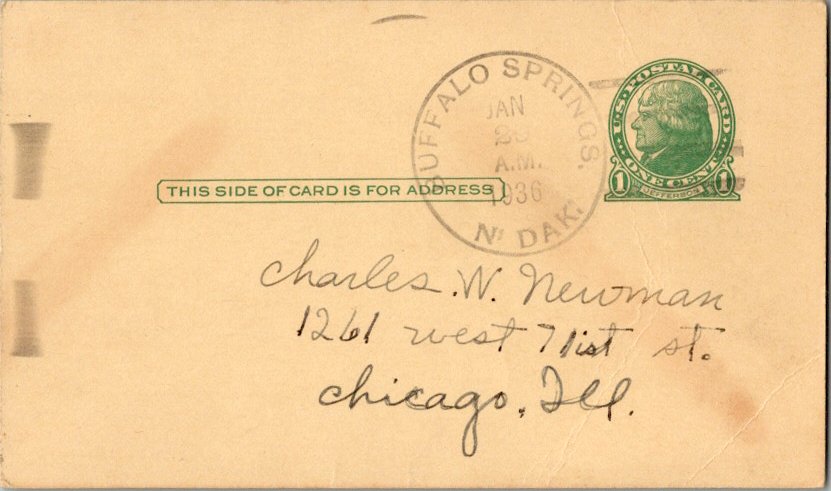 BUFFALO SPRINGS.
JAN
A.M.
1936
N. DAK.
U.S. POSTAL CARD
ONE CENT
1 JEFFERSON 1
THIS SIDE OF CARD IS FOR ADDRESS
Charles. W. Newman
1261 west 71ist st.
chicago. Ill.